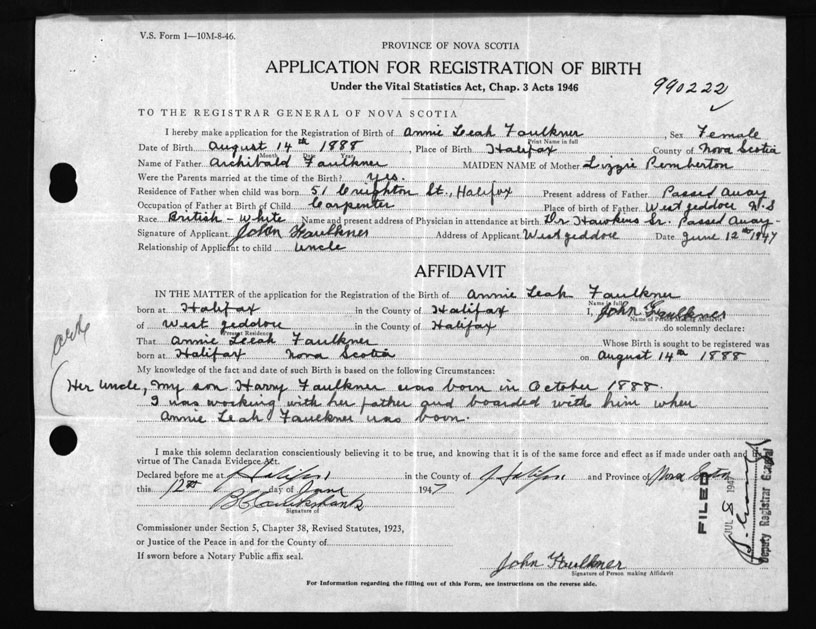 V.S. Form 1—10M-8-46.
PROVINCE OF NOVA SCOTIA
APPLICATION FOR REGISTRATION OF BIRTH
Under the Vital Statistics Act, Chap. 3 Acts 1946
990222
TO THE REGISTRAR GENERAL OF NOVA SCOTIA
I hereby make application for the Registration of Birth of Annie Leah Faulkner, Sex Female
Print Name in full
Date of Birth August 14th 1888, Place of Birth Halifax County of Nova Scotia
Month Day Year
Name of Father Archibald Faulkner MAIDEN NAME of Mother Lizzie Pemberton
Were the Parents married at time of the Birth? Yes.
Residence of Father when child was born 51 Creighton St., Halifax Present address of Father Passed Away
Occupation of Father at Birth of Child Carpenter Place of birth of Father West Jeddore N.S
Race British - White Name and present address of Physician in attendance at birth Dr Hawkins Sr. Passed Away -
Signature of Applicant John Faulkner Address of Applicant West Jeddore Date June 12th 1947
Relationship of Applicant to child Uncle
AFFIDAVIT
IN THE MATTER of the application for the Registration of the Birth of Annie Leah Faulkner
Name in full
born at Halifax in the County of Halifax I, John Faulkner
Name of Person Making Affidavit
of West Jeddore in the County of Halifax do solemnly declare:
Present Residence
That Annie Leah Faulkner Whose Birth is sought to be registered was
born at Halifax Nova Scotia on August 14th 1888
My knowledge of the fact and date of such Birth is based on the following Circumstances:
Her uncle, my son Harry Faulkner was born in October 1888.
I was working with her father and boarded with him when
Annie Leah Faulkner was born.
I make this solemn declaration conscientiously believing it to be true, and knowing that it is of the same force and effect as if made under oath and by
virtue of The Canada Evidence Act.
Declared before me at Halifax in the County of Halifax and Province of Nova Scotia
this 12th day of June 1947
Signature of
Commissioner under Section 5, Chapter 38, Revised Statutes, 1923,
or Justice of the Peace in and for the County of
If sworn before a Notary Public affix seal.
John Faulkner
Signature of Person making Affidavit
For Information regarding the filling out of this Form, see instructions on the reverse side.
FILED
JUL 8 1947
Deputy Registrar General